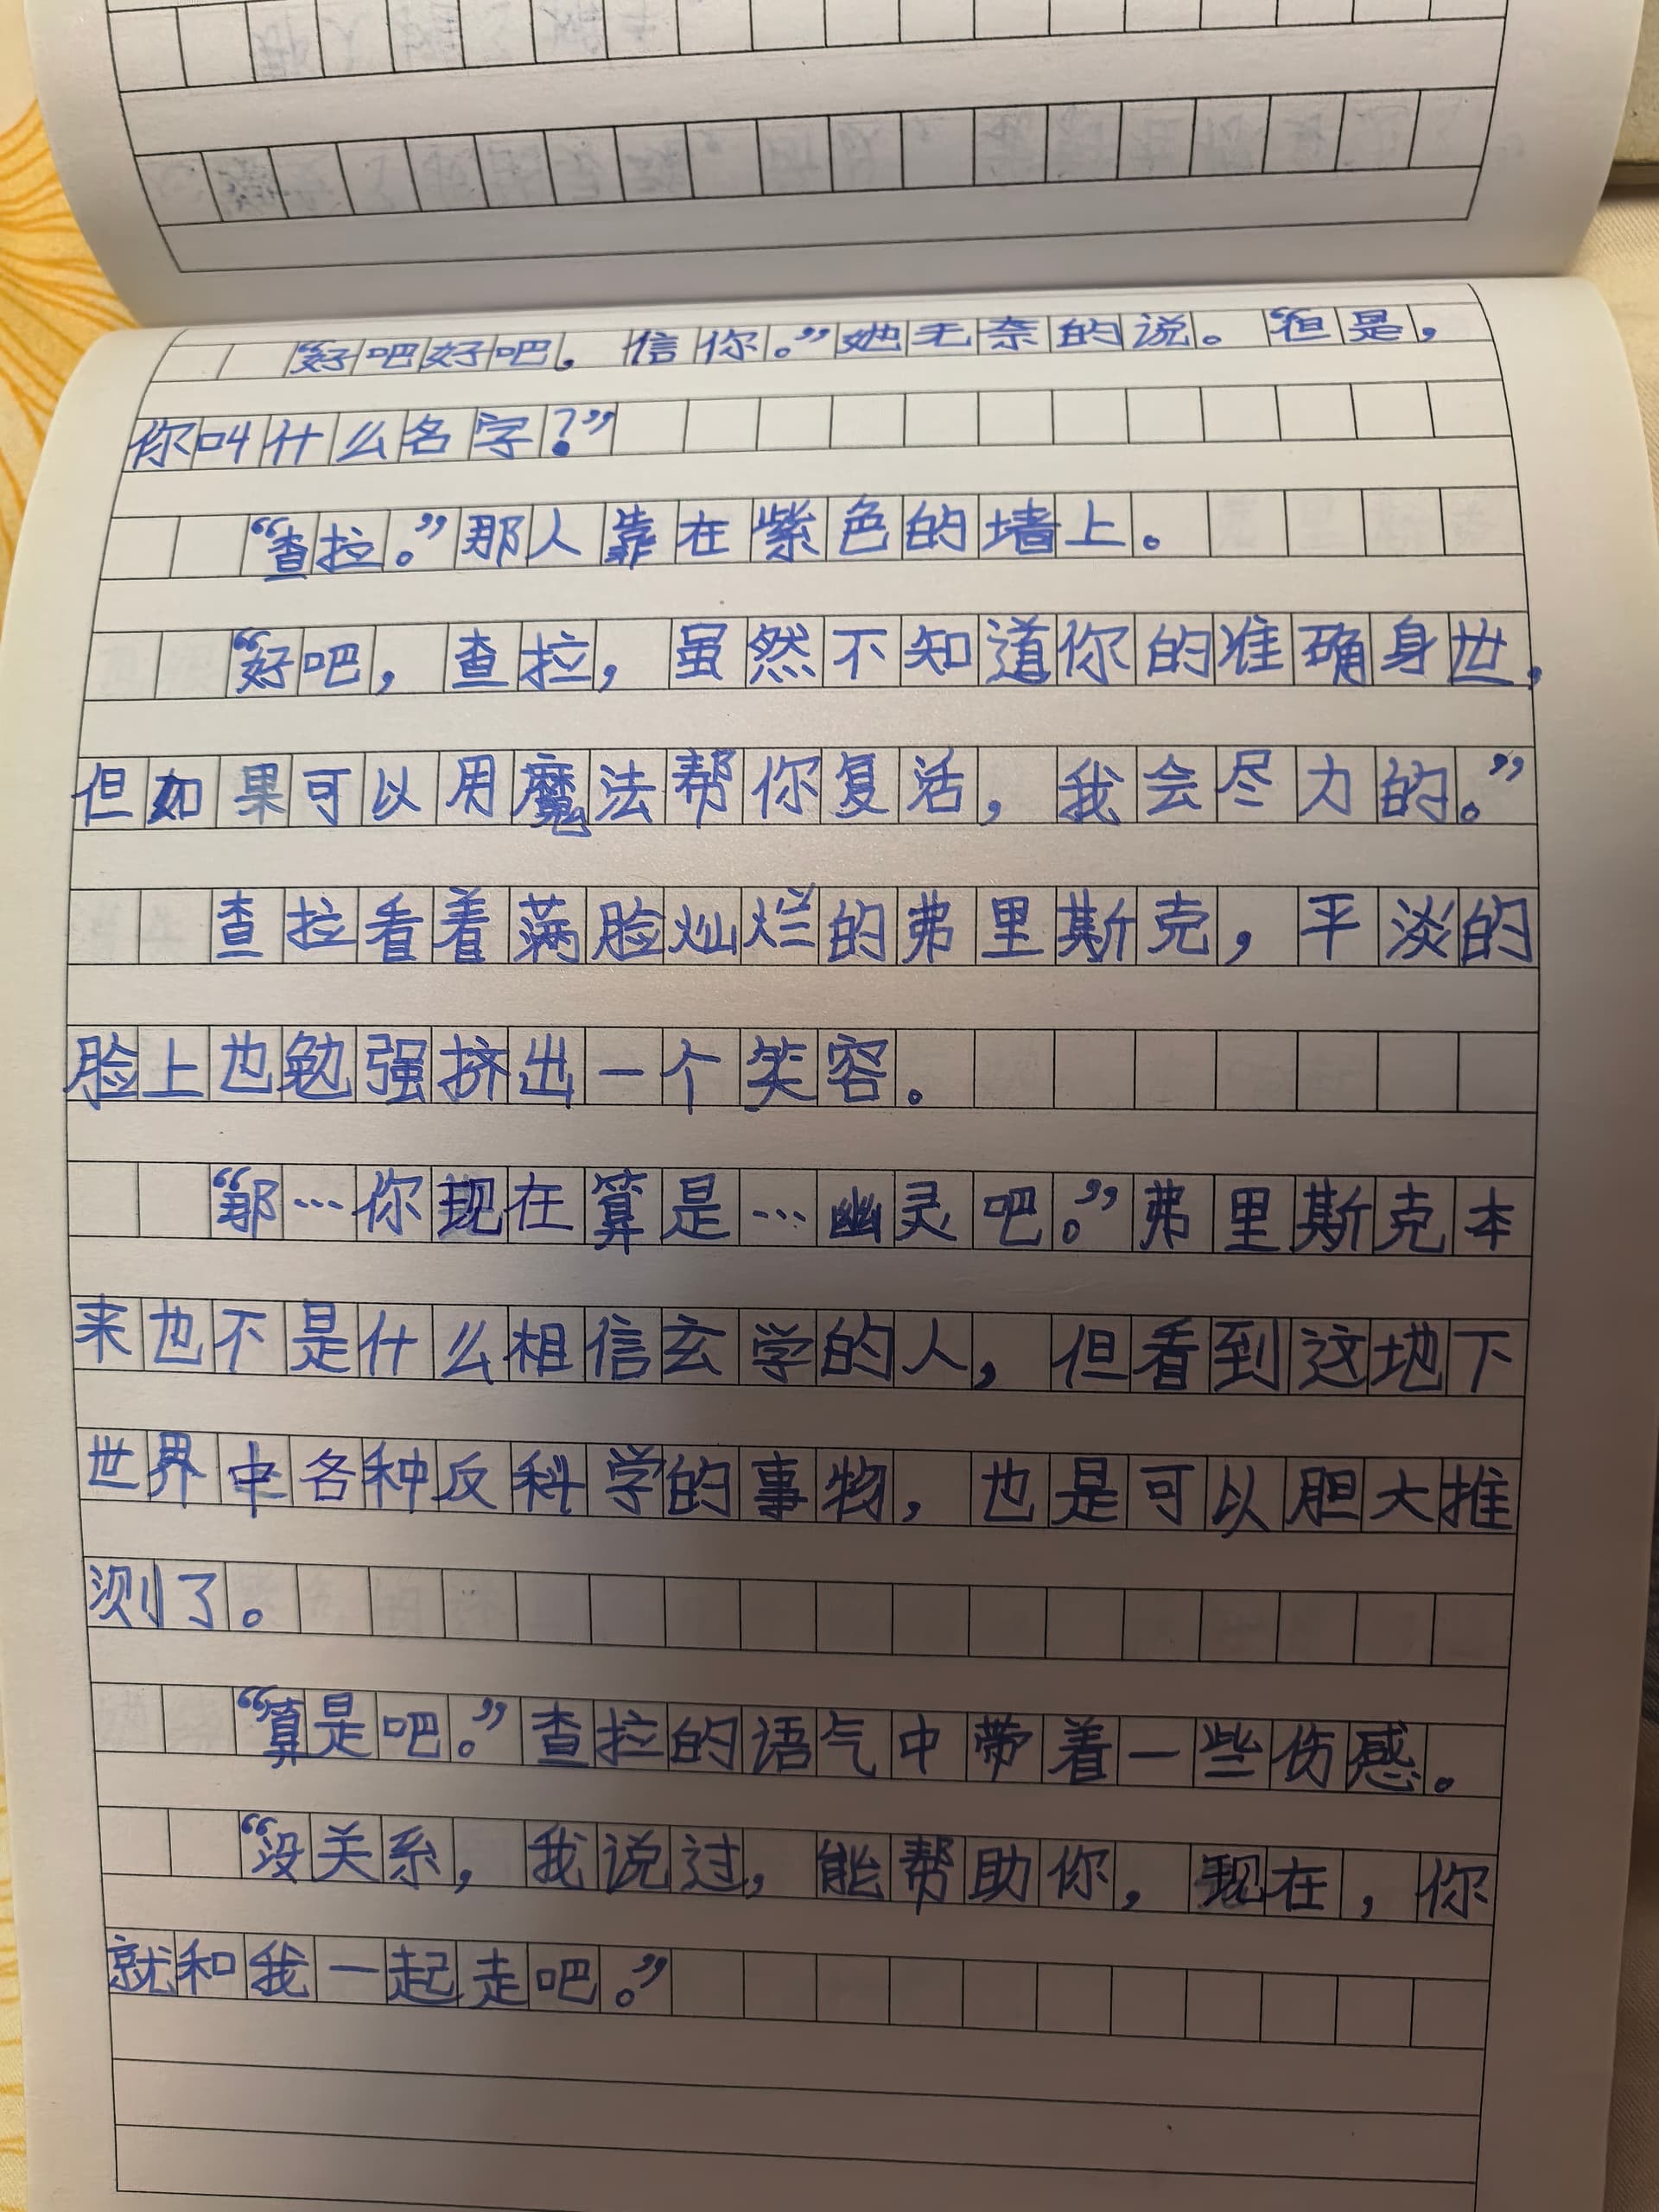 “好吧好吧，信你。”她无奈的说。“但是，
你叫什么名字？”
“查拉。”那人靠在紫色的墙上。
“好吧，查拉，虽然不知道你的准确身世，
但如果可以用魔法帮你复活，我会尽力的。”
查拉看着满脸灿烂的弗里斯克，平淡的
脸上也勉强挤出一个笑容。
“那…你现在算是…幽灵吧。”弗里斯克本
来也不是什么相信玄学的人，但看到这地下
世界中各种反科学的事物，也是可以胆大推
测了。
“算是吧。”查拉的语气中带着一些伤感。
“没关系，我说过，能帮助你，现在，你
就和我一起走吧。”